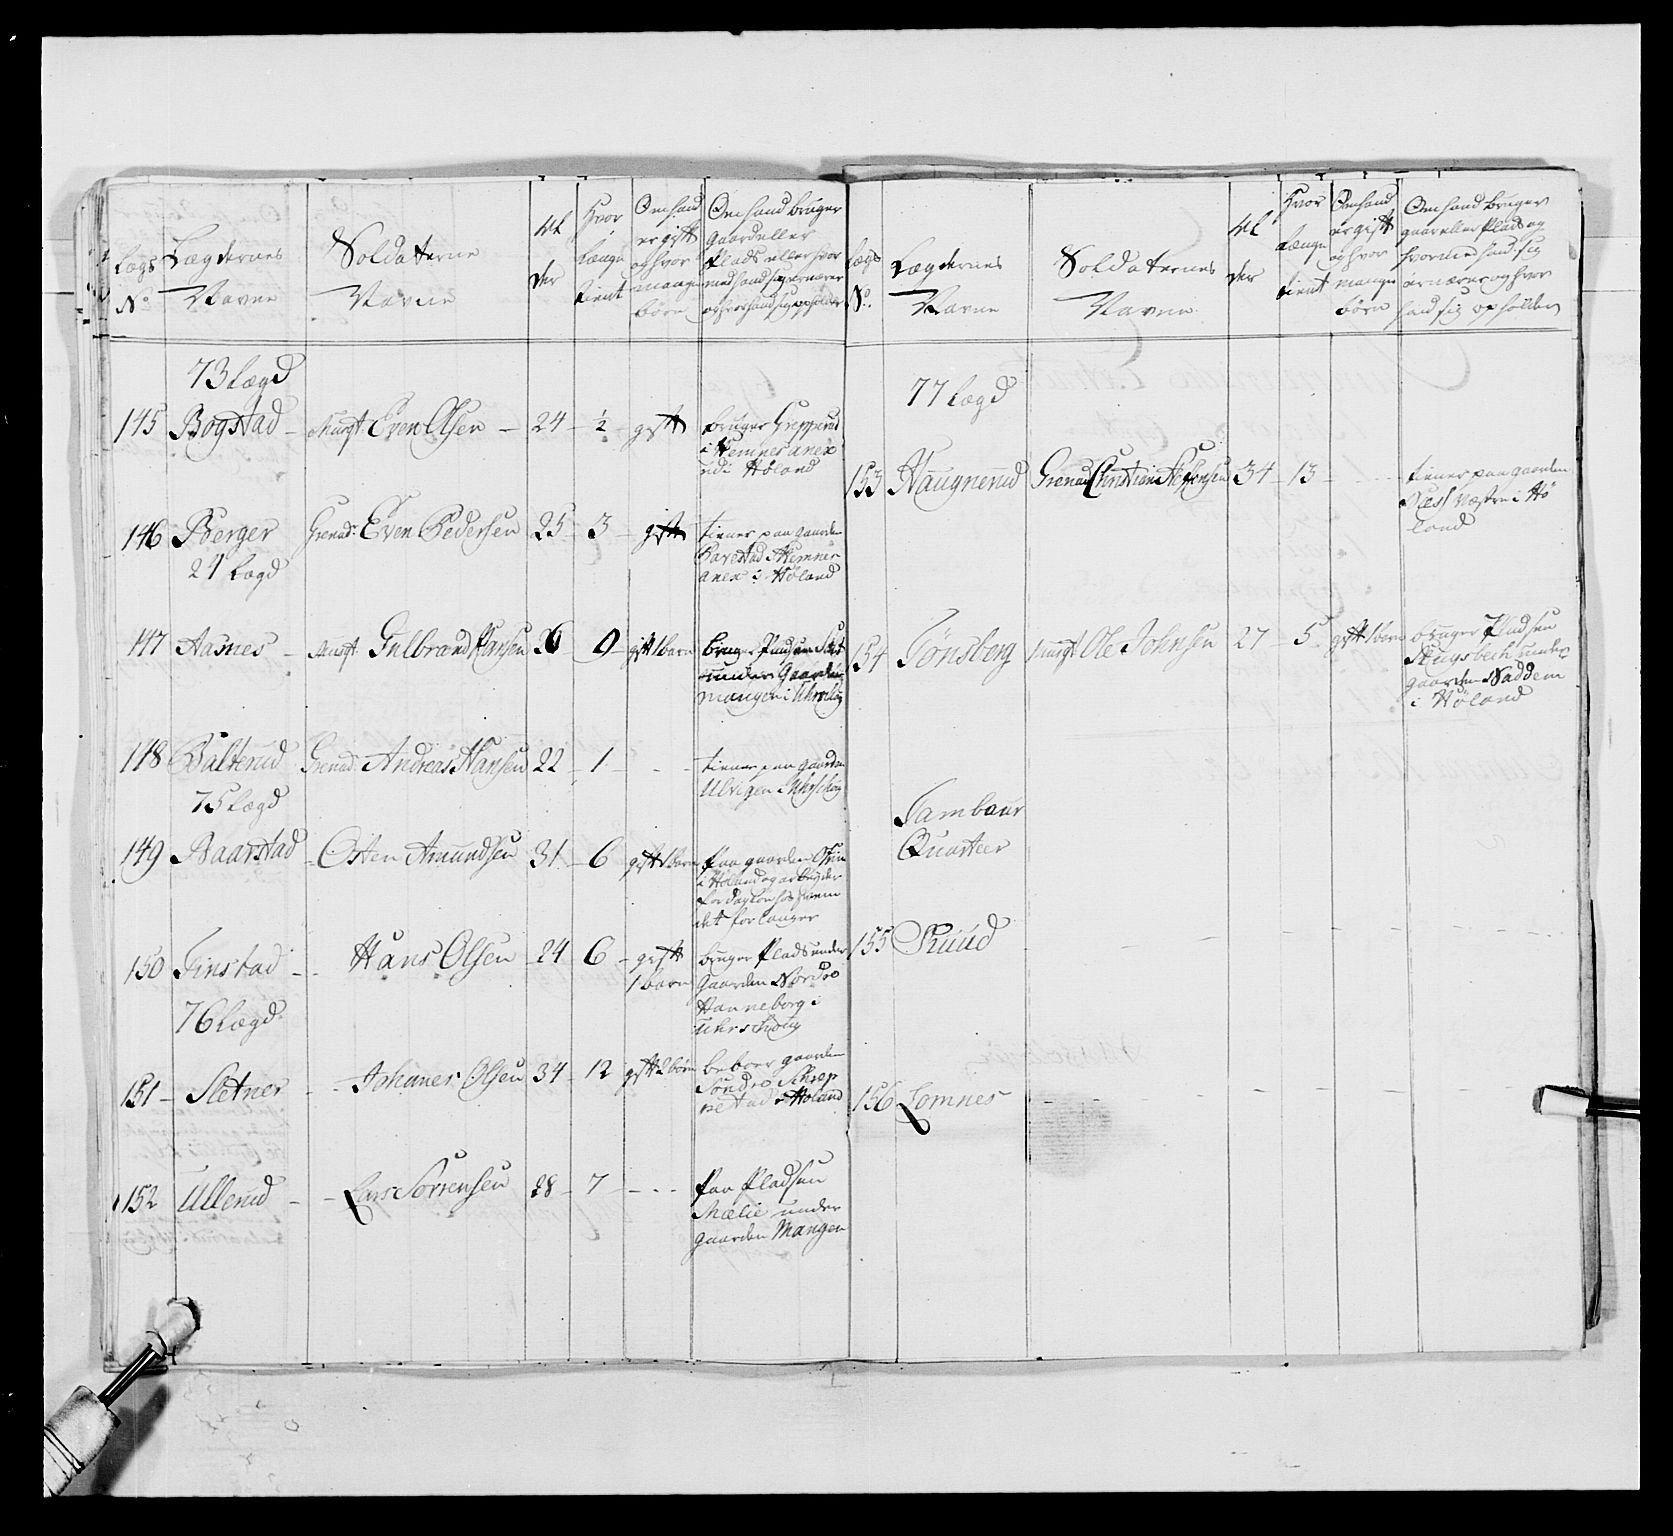 Lægs No
Lægdernes Navne
Soldaterne Navne
Al der
Hvor Længe tient
Om hand er gift og hvor mange börn
Om hand bruger gaard eller Plads eller hvor med hand sig ernærer og hvor hand sig opholder
73 Lægd
145 Bogstad - Musqt. Even Olsen - 24 - ½ - gift
bruger
i Hemnes anex
udi Höland
146 Berger Grenad: Even Pedersen 25 - 3 - gift
tiener paa gaarden
i Hemnes
anex i Höland
24 Lægd
147 Aasnes - Musqt. Gulbrand Hansen 36 - 9 - gift 1 barn
bruger Pladsen
under Gaarden
Mangen i Uhrschoug
148 Balterud Grenad: Andreas Hansen 22 - 1 - - -
tiener paa gaarden
Ulvigen i Uhrschoug
75 Lægd
149 Baarstad - Osten Amundsen 31 - 6 gift 1 barn
Paa gaarden
i Höland og arbeyder
for daglön hos hvem
det forlanger
150 Finstad - - Hans Olsen - 24 - 6 - gift
1 barn
bruger Plads under
Gaarden Nordre
Hanneborg i
Uhrschoug
76 Lægd
151 - Sletner - - Johanes Olsen 34 - 12 gift 2 börn
beboer gaarden
Söndre
i Höland
152 Ullerud - - Lars Sörrensen 28 - 7 - - - -
Paa Pladsen
Mælie under
gaarden Mangen
Lægs No.
Lægdernes Navne
Soldaternes Navne
Al der
Hvor Længe tient
Om hand er gift og hvor mange börn
Om hand bruger gaar eller Plads og hvormed hand sig ernærer og hvor hand sig opholder
77 Lægd
153 Haugnerud Grenad Christian Steffensen 34 - 13 - - - -
tiener paa gaarden
Næss Væstre i Hö
land
154 Tönsberg Musqt. Ole Johnsen 27 - 5 gift 1 barn
bruger Pladsen
under
gaarden Naddem
i Höland
Tambour
Quarteer
155 Kuud - - - - - -
156 Lomnes - - - - - -